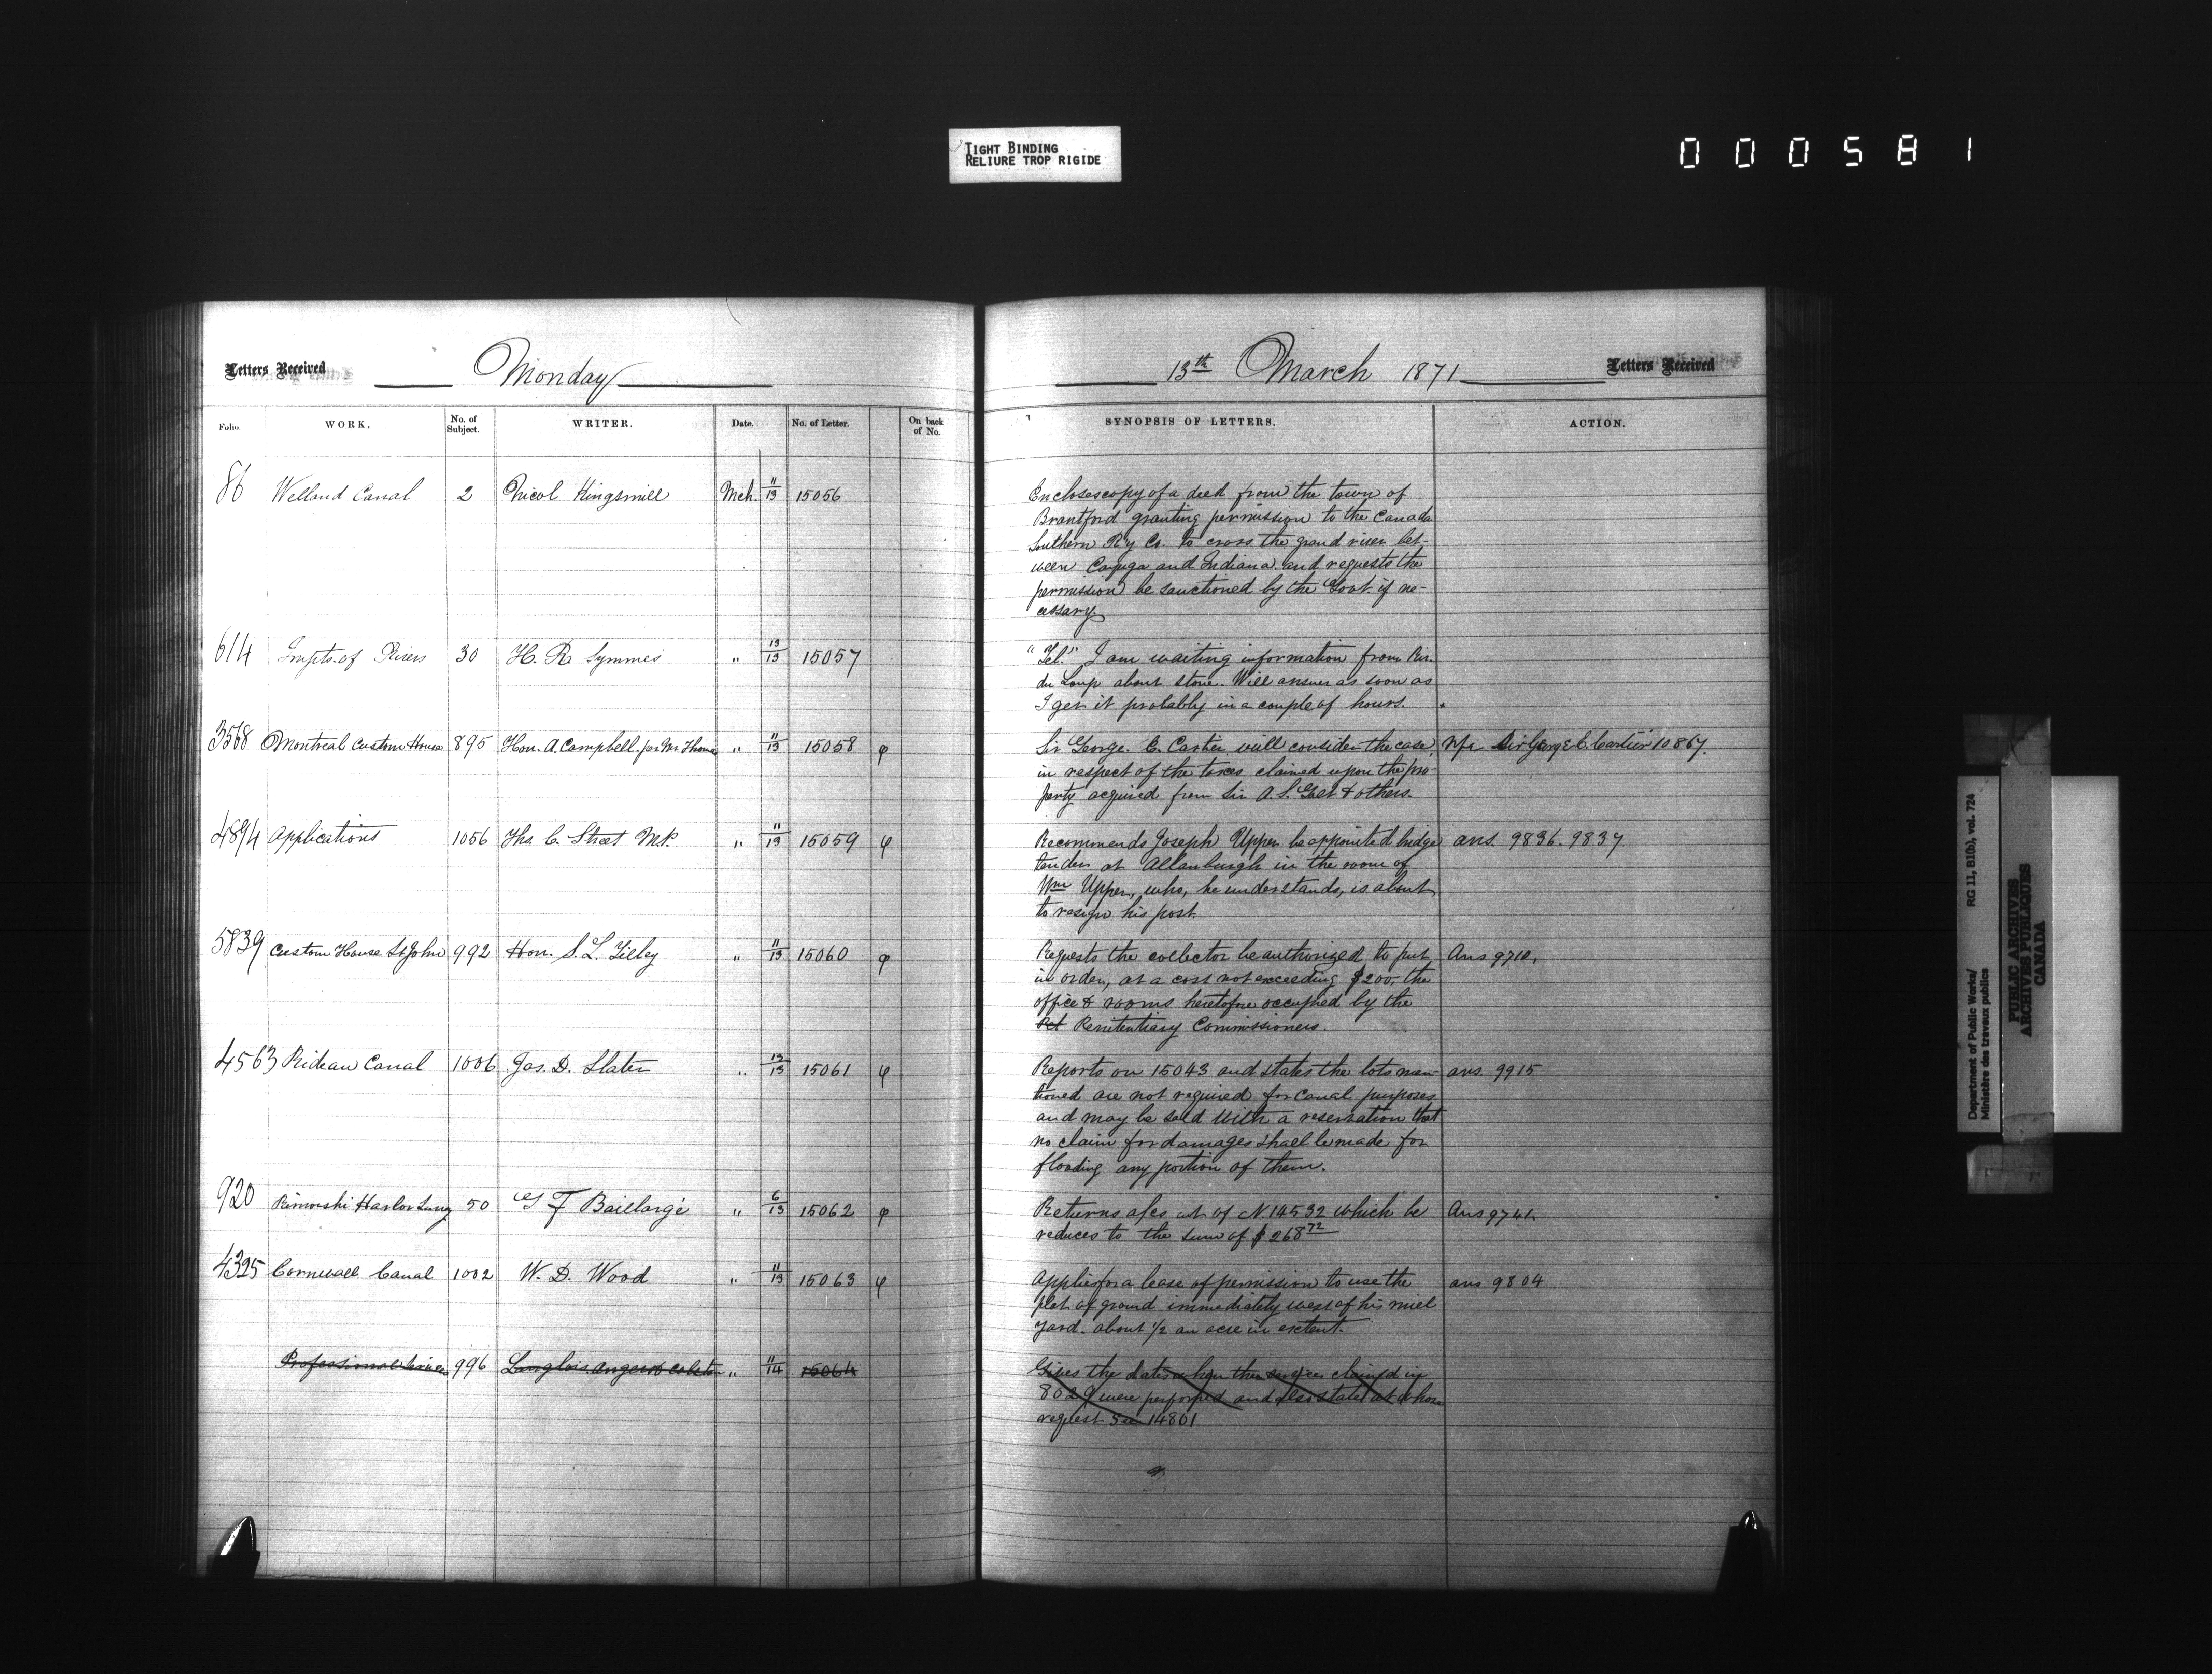 TIGHT BINDING
RELIURE TROP RIGIDE
000581
Letters Received
Monday
13th March 1871
Letters Received
Folio.
WORK.
No. of Subject.
WRITER.
Date.
No. of Letter.
On back of No.
SYNOPSIS OF LETTERS.
ACTION.
86 Welland Canal 2 Nicol Kingsmill Mch. 11/13 15056
Encloses copy of a deed from the town of
Brantford granting permission to the Canada
Southern Ry Co. to cross the grand river bet-
ween Cayuga and Indiana and requests the
permission be sanctioned by the Govt. if ne-
cessary
614 Impts. of Rivers 30 H. R. Symmes " 13/13 15057
"Tel." I am waiting information from Riv.
du Loup about stone. Will answer as soon as
I get it probably in a couple of hours.
3568 Montreal Custom House 895 Hon. A. Campbell per Mr Thomas " 11/13 15058 φ
Sir George. E. Cartier will consider the case
in respect of the taxes claimed upon the pro-
perty acquired from Sir A. T. Galt & others.
Sir George E. Cartier 10867.
4894 Applications 1056 Ths. C. Street M.P. " 11/13 15059 φ
Recommends Joseph Upper be appointed bridge
tender at Allanburgh in the room of
Wm Upper, who, he understands, is about
to resign his post.
ans. 9836. 9837
5839 Custom House St John 992 Hon. S. L. Tilley " 11/13 15060 φ
Requests the collector be authorized to put
in order, at a cost not exceeding $200, the
office & rooms heretofore occupied by the
Pet Penitentiary Commissioners.
Ans 9710,
4563 Rideau Canal 1006 Jas. D. Slater " 13/13 15061 φ
Reports on 15043 and states the lots men-
tioned are not required for canal purposes
and may be sold with a reservation that
no claim for damages shall be made for
flooding any portion of them.
ans. 9915
920 Rimouski Harbor 50 G F Baillargé " 6/13 15062 φ
Returns a/cs of N. 14532 which he
reduces to the sum of $268 72
Ans 9741.
4325 Cornwall Canal 1002 W. D. Wood " 11/13 15063 φ
Applies for a lease of permission to use the
plot of ground immediately west of his mill
yard. about 1/2 an acre in extent.
ans 9804
Professional Services 996 Langlois Angers & Colston " 11/14 15064
Gives the dates when the services claimed in
8029 were performed and also states at whose
request See 14801
Department of Public Works/
Ministère des travaux publics
RG 11, B1(b), vol. 724
PUBLIC ARCHIVES
ARCHIVES PUBLIQUES
CANADA